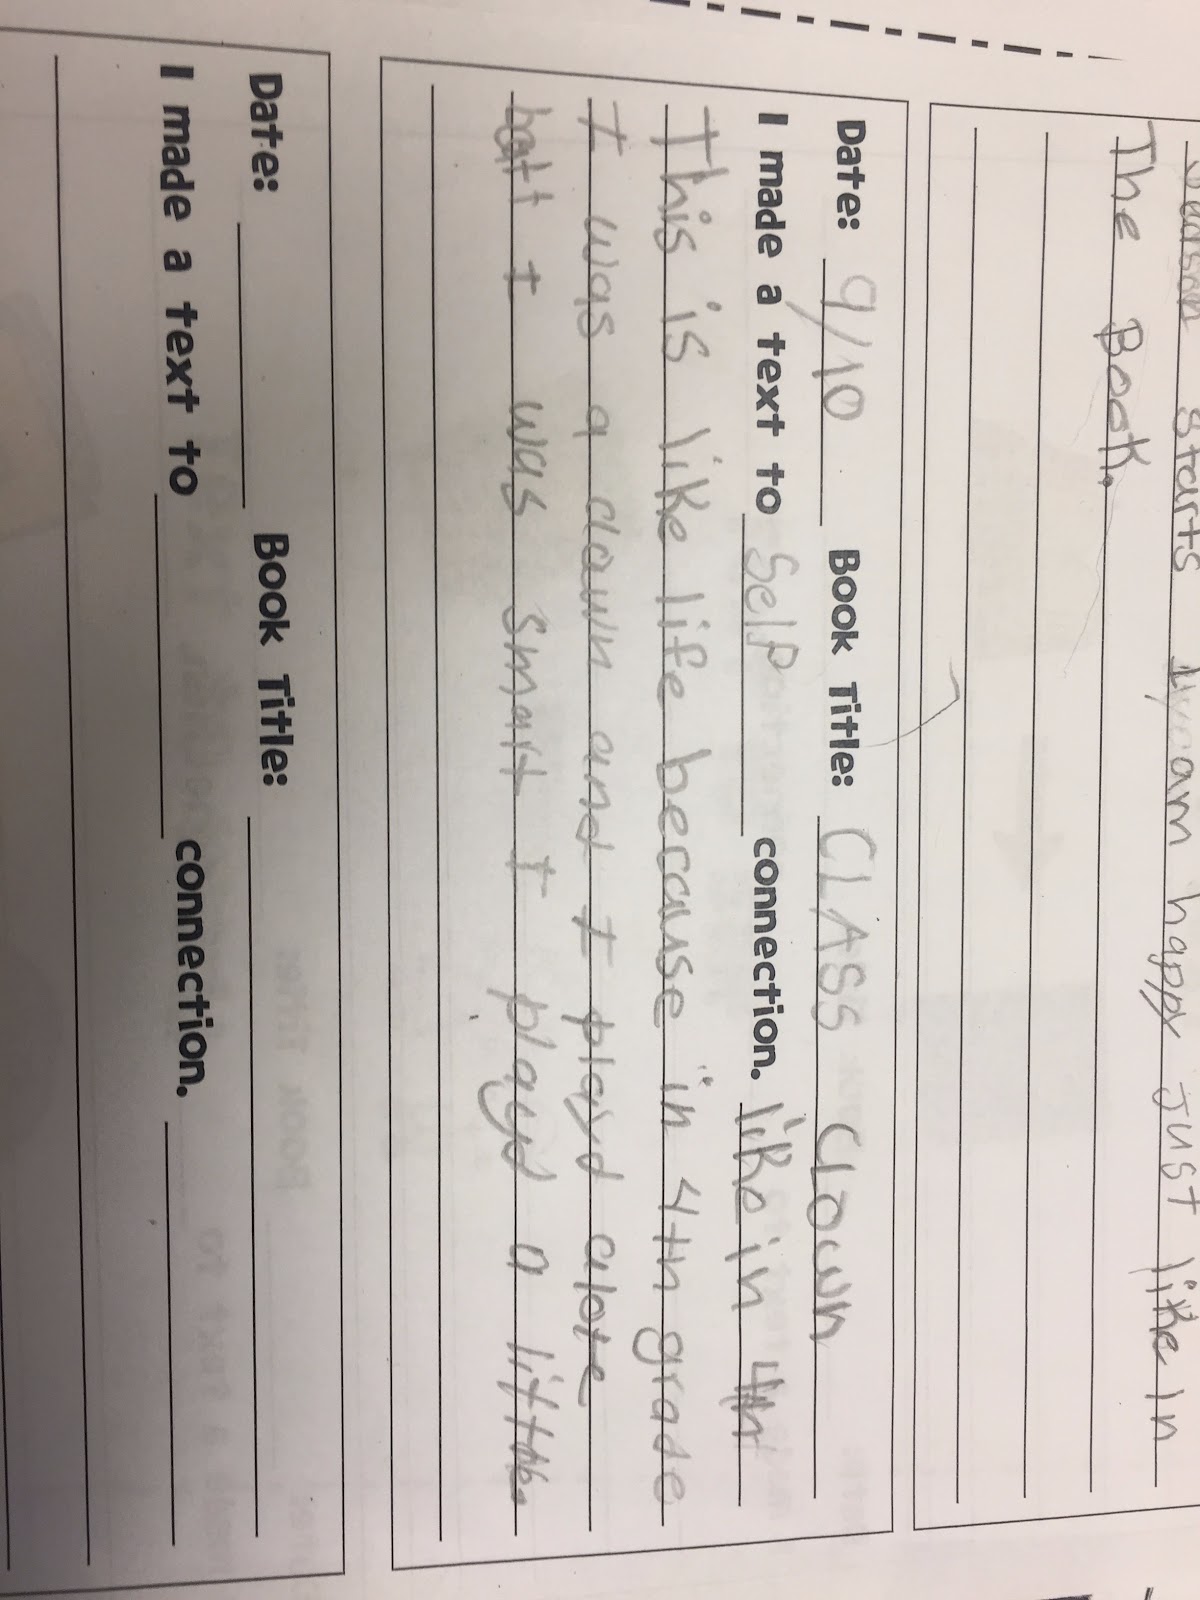 starts am happy Just like in
The Book.
Date: 9/10 Book Title: CLASS Clown
I made a text to Self connection. like in 4th
This is like life because in 4th grade
I was a clown and I playd alote
batt I was smart I playd a little.
Date: Book Title:
I made a text to connection.